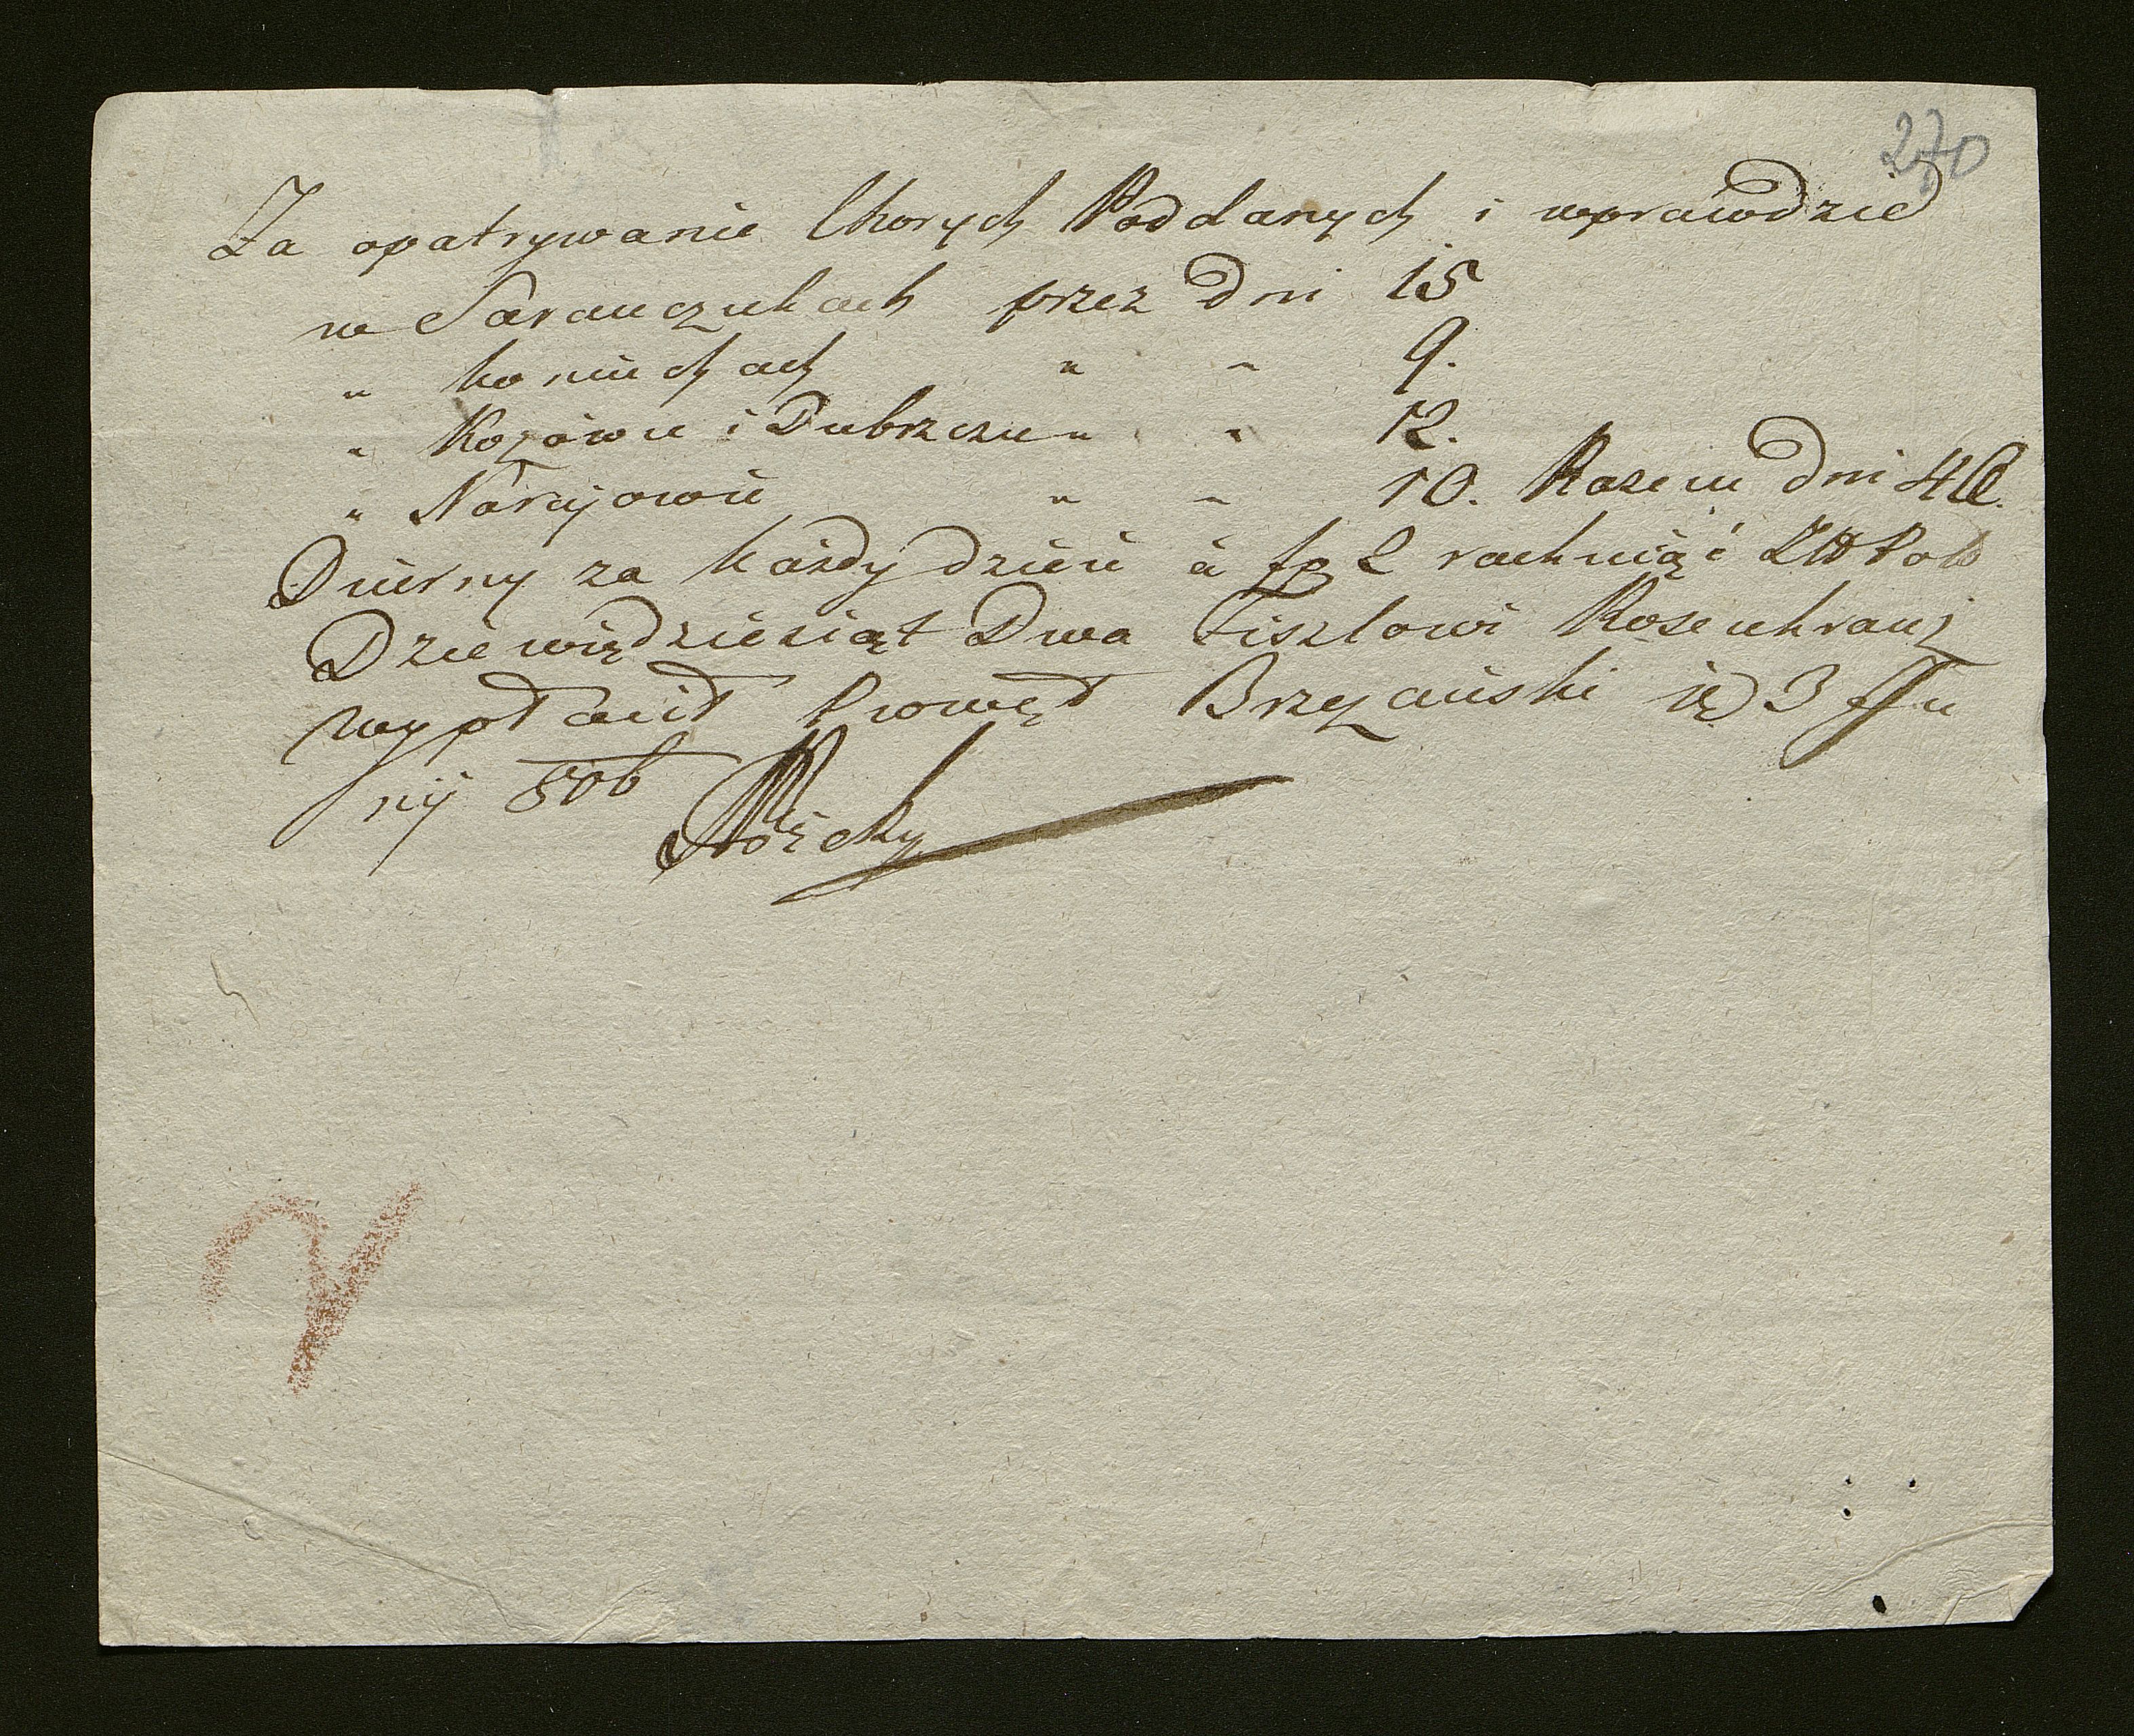 270
Za opatrywanie Chorych Poddanych i wprawdzie
w Saranczukach przez Dni 15
" Koniuchach " " 9.
" Kozowie i Dubrzczu " " 12.
" Narajowie " " 10. Razem Dni 46.
Dniowy za każdy dzień à fp 2 rachuiąć Zł Pol
Dziewiędziesiąt Dwa Fiszlowi Rosenkranz
wypłacić Prowęt Brzezański ię 3
806